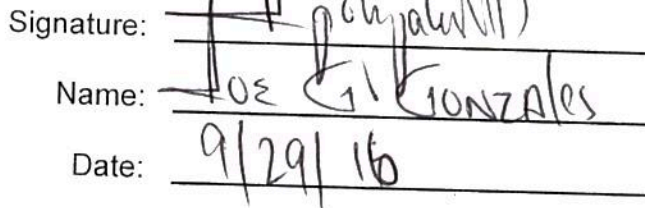 Signature:
Name: JOE G. GONZAlES
Date: 9/29/16